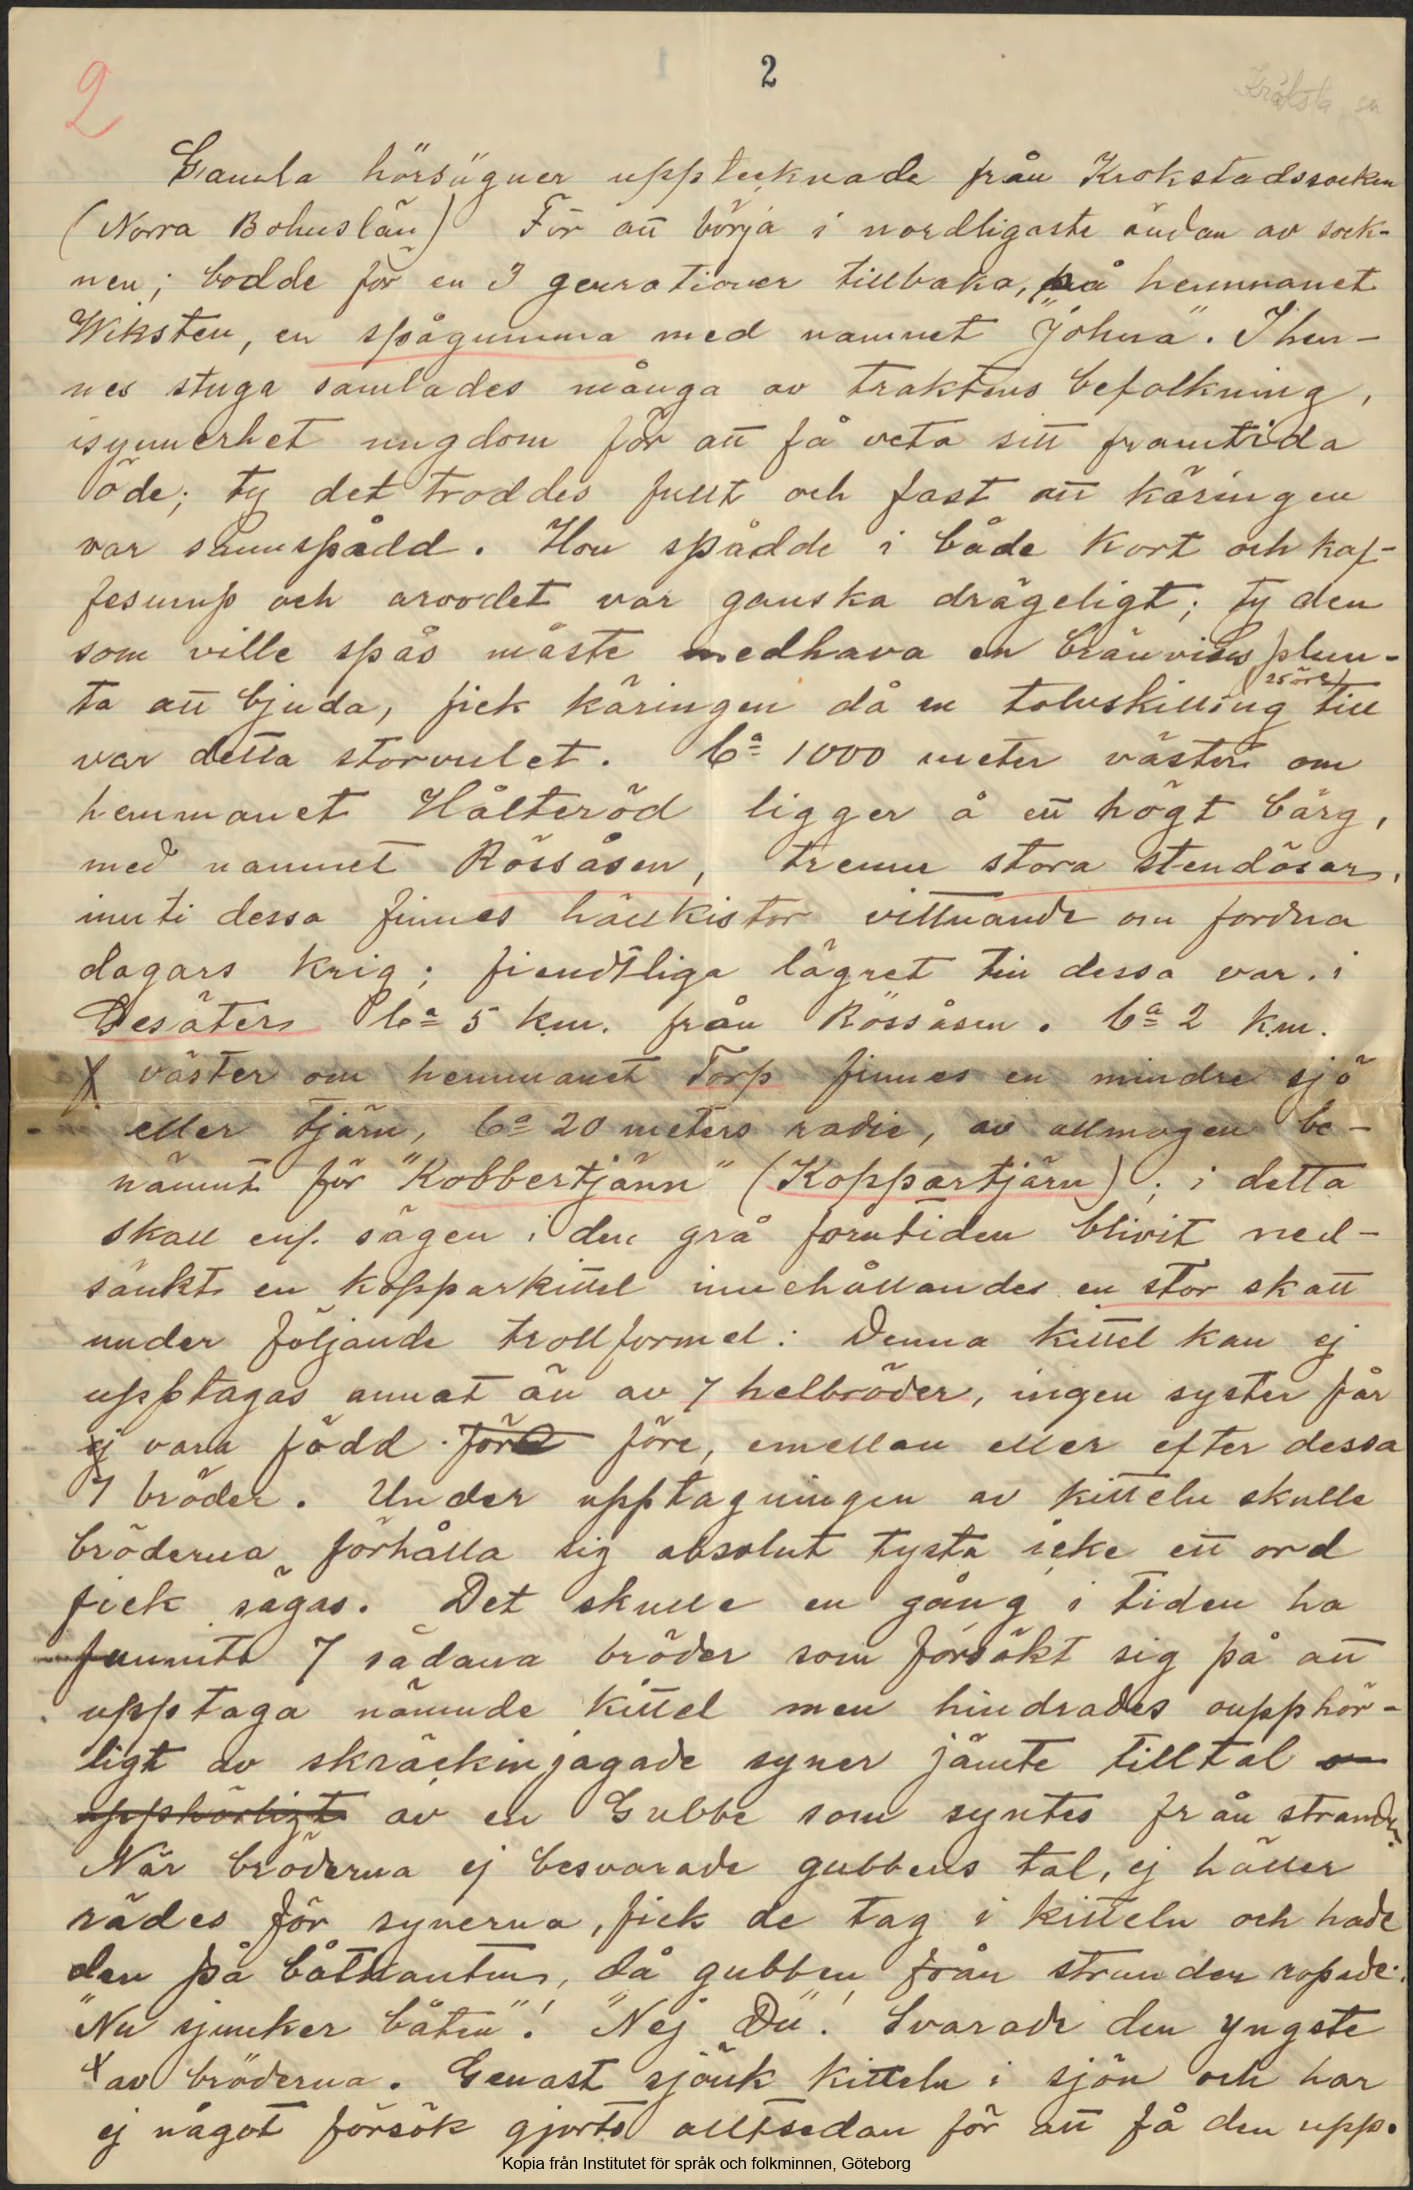 2
2
Gamla hörsägner upptecknade från Krokstadssocken
(Norra Bohuslän) För att börja i nordligaste ändan av sock-
nen; bodde för en 3 genrationer tillbaka, på hemmanet
Wiksten, en spågumma med namnet "Johna". I hen-
nes stuga samlades många av traktens befolkning,
isynnerhet ungdom för att få veta sitt framtida
öde; ty det troddes fullt och fast att käringen
var sannspådd. Hon spådde i både kort och kaf-
fesump och arvodet var ganska drägeligt; ty den
som ville spås måste medhava en bränvins plun-
ta att bjuda, fick käringen då en tolvskilling (25 öre) till
var detta storvulet. Ca 1000 meter väster om
hemmanet Hålteröd ligger å ett högt bärg,
med namnet Rössåsen, trenne stora stendösar,
inuti dessa finnes hällkistor vittnande om fordna
dagars krig; fiendtliga lägret till dessa var i
Desäter Ca 5 km. från Rössåsen. Ca 2 km.
X väster om hemmanet Torp finnes en mindre sjö
eller tjärn, Ca 20 meters radie, av allmogen be-
nämnt för "Kobbertjänn" (Koppartjärn); i detta
skall enl. sägen i den grå forntiden blivit ned-
sänkt en kopparkittel innehållandes en stor skatt
under följande trollformel: Denna kittel kan ej
upptagas annat än av 7 helbröder, ingen syster får
ej vara född före, emellan eller efter dessa
7 bröder. Under upptagningen av kitteln skulle
bröderna förhålla sig absolut tysta icke ett ord
fick sägas. Det skulle en gång i tiden ha
funnits 7 sådana bröder som försökt sig på att
upptaga nämnde kittel men hindrades oupphör-
ligt av skräckinjagade syner jämte tilltal o-
upphörligt av en Gubbe som syntes från stranden.
När bröderna ej besvarade gubbens tal, ej häller
rädes för synerna, fick de tag i kitteln och hade
den på båtkanten, då gubben från stranden ropade:
"Nu sjunker båten"! "Nej Du"! Svarade den yngste
X av bröderna. Genast sjönk kitteln i sjön och har
ej något försök gjorts alltsedan för att få den upp.
Kopia från Institutet för språk och folkminnen, Göteborg